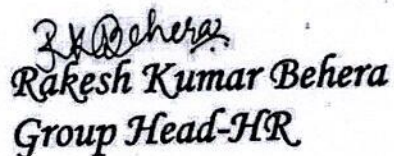 RKBehera
Rakesh Kumar Behera
Group Head-HR